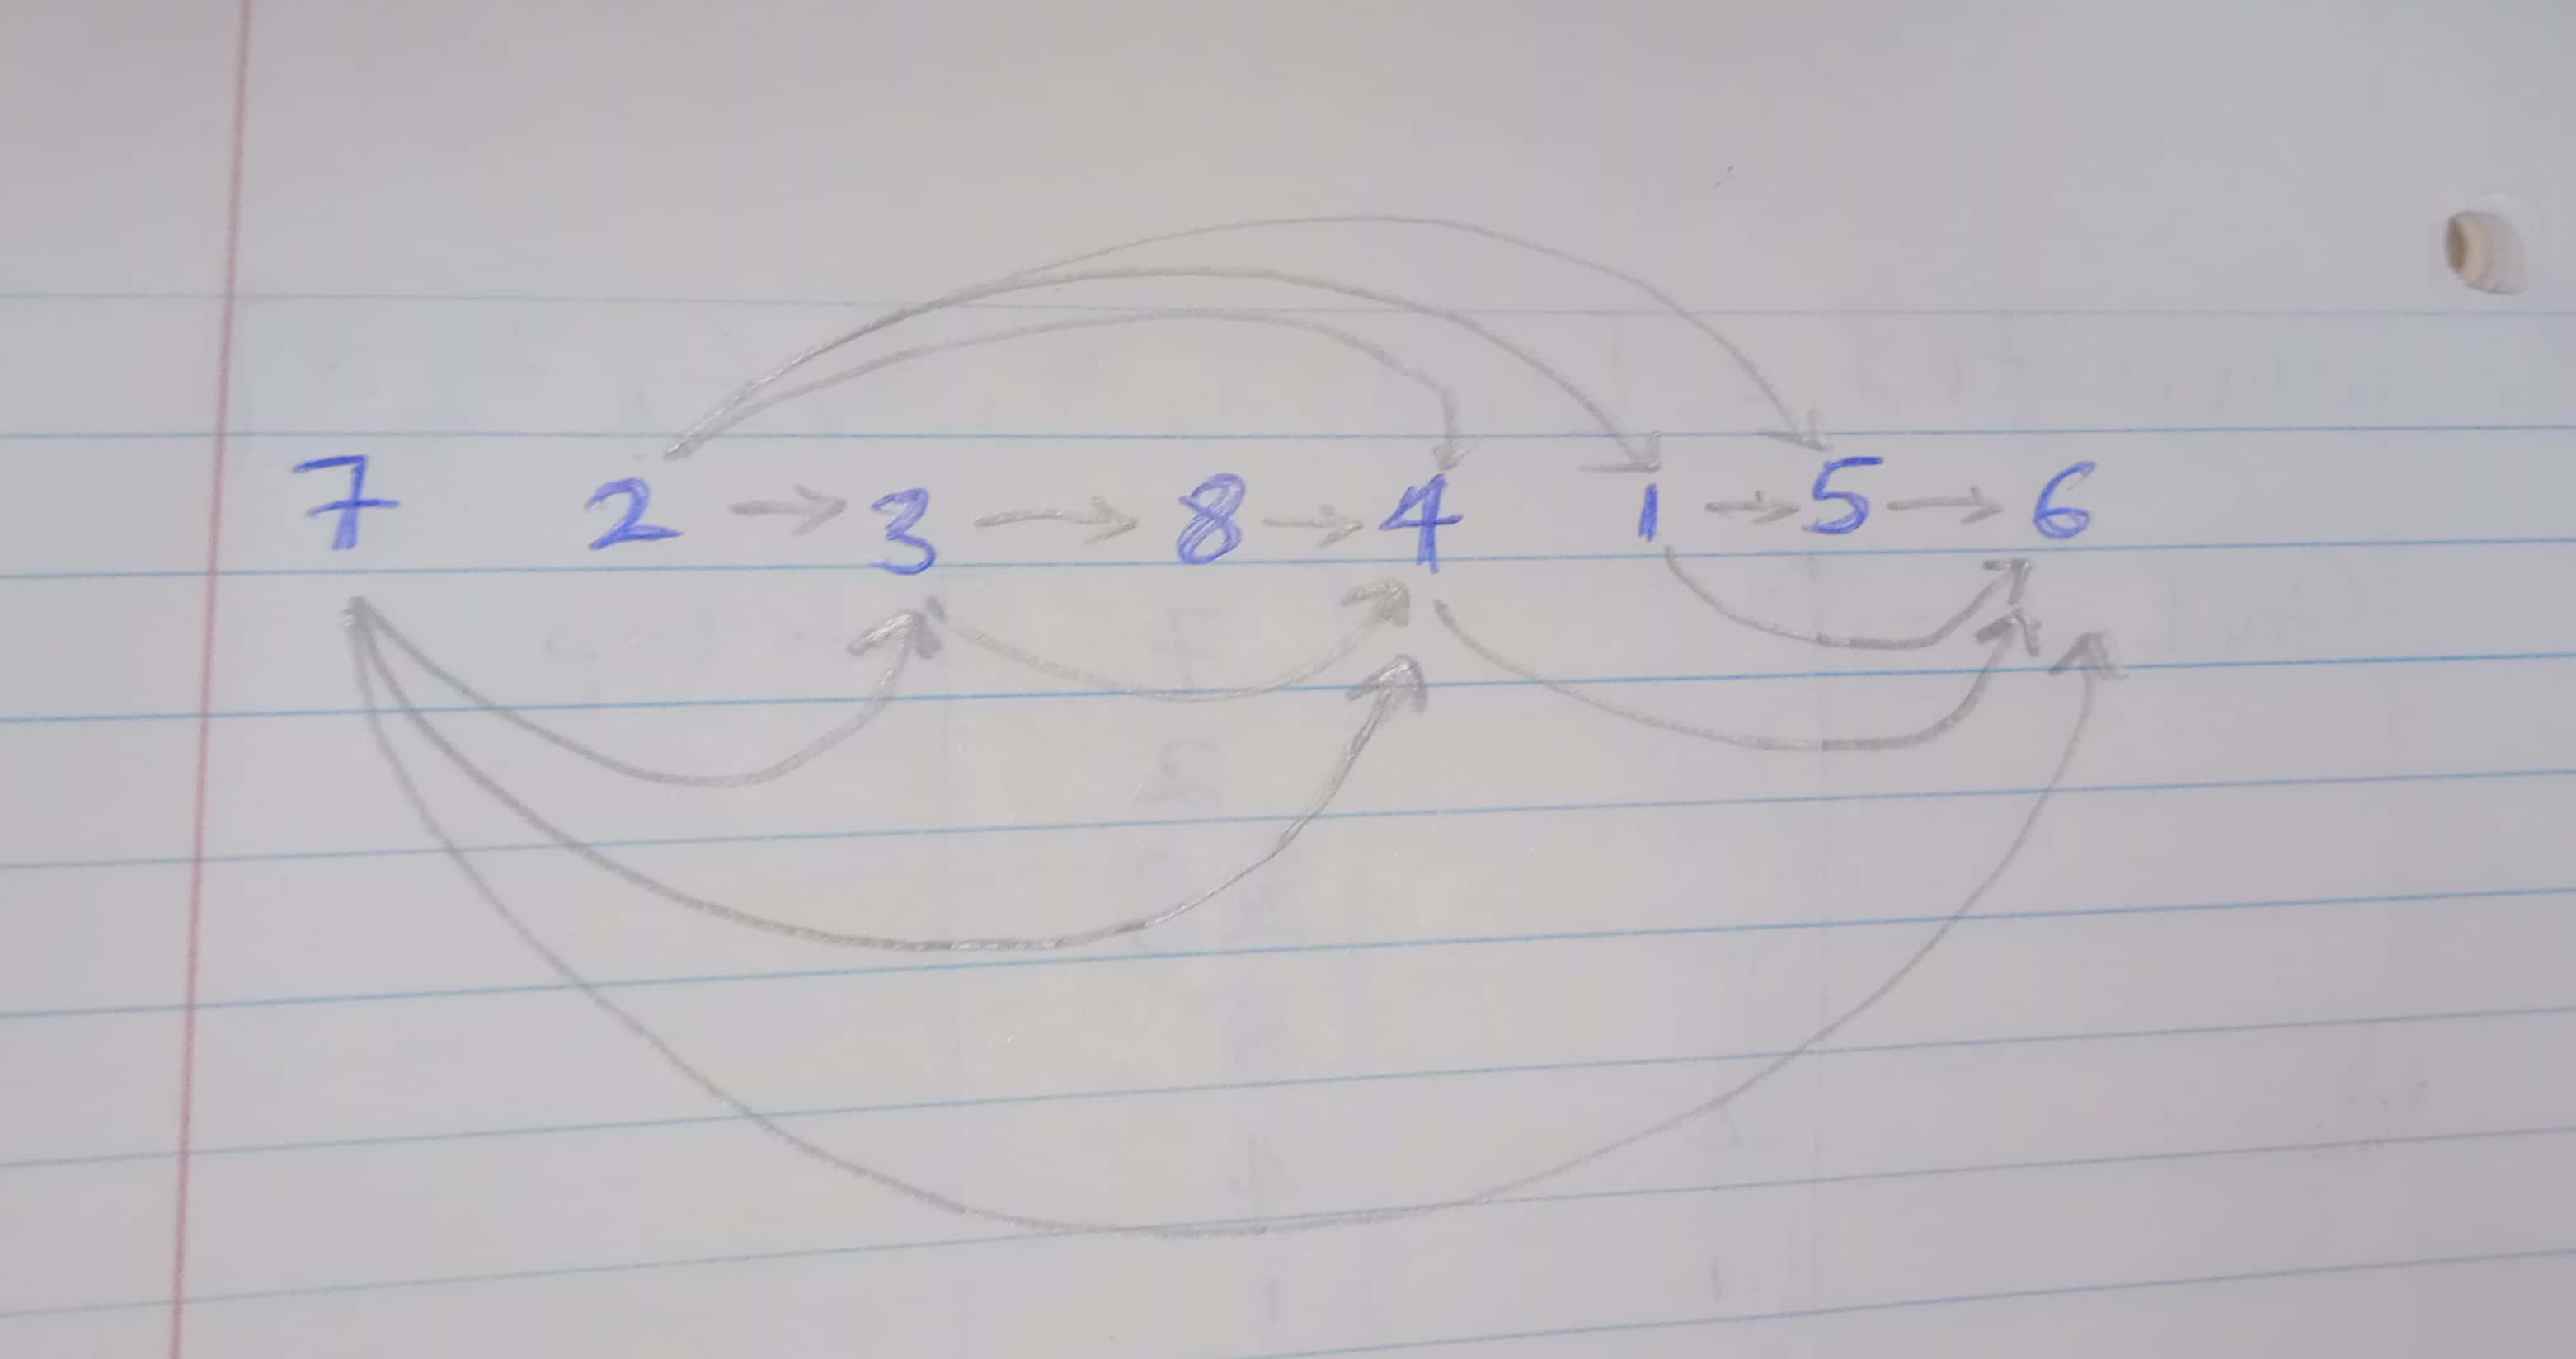 7 2 → 3 → 8 → 4 1 → 5 → 6